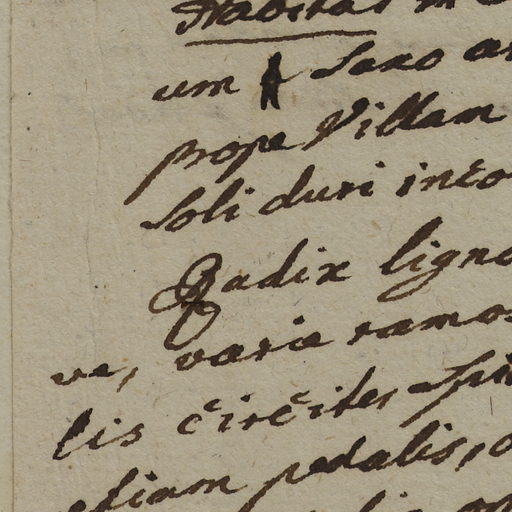 Habitat in
um & saxo
prope Villam
soli duri inco
Radix ligno
ve, varie ramos
lis circiter spi
etiam pedalis,